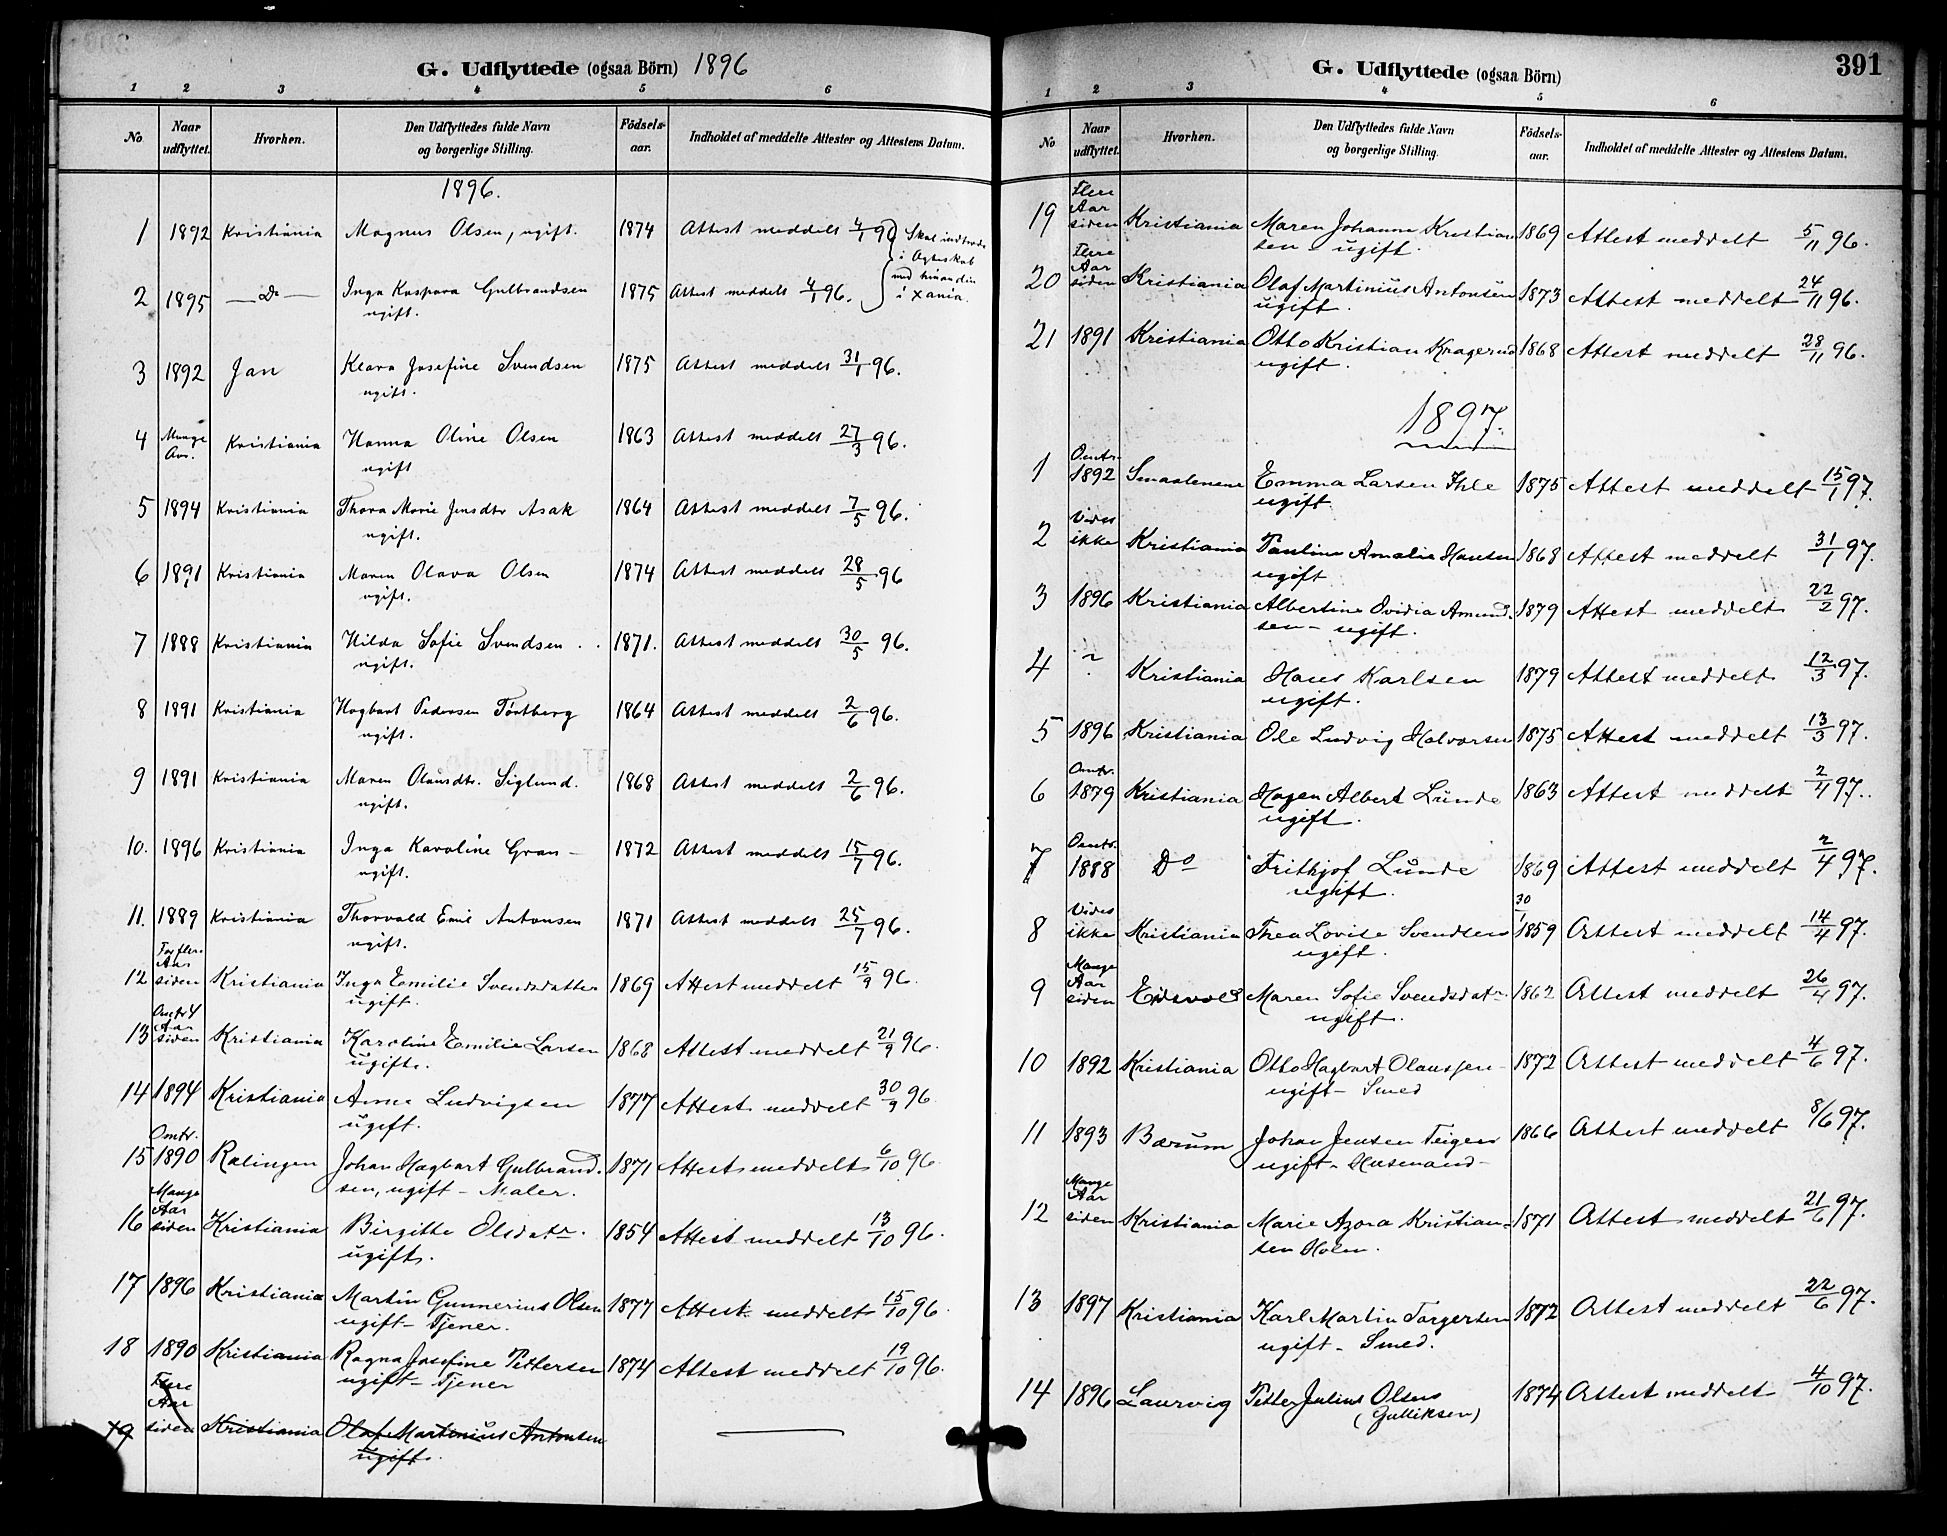 G. Udflyttede (ogsaa Börn) 1896
1 2 3 4 5 6
No Naar udflyttet. Hvorhen. Den Udflyttedes fulde Navn og borgerlige Stilling. Födsels-aar. Indholdet af meddelte Attester og Attestens Datum.
1896.
1 1892 Kristiania Magnus Olsen, ugift. 1874 Attest meddelt 4/1 96 Skal indtræde i Ægteskab med hinanden i Xania.
2 1895 — Do — Inga Kaspara Gulbrandsen 1875 Attest meddelt 4/1 96.
ugift.
3 1892 Jan Klara Josefine Svendsen 1875 Attest meddelt 31/1 96.
ugift.
4 Mange Aar. Kristiania Hanna Oline Olsen 1863 Attest meddelt 27/3 96.
ugift
5 1894 Kristiania Thora Marie Jensdtr Asak 1864 Attest meddelt 7/5 96.
ugift.
6 1891 Kristiania Maren Olava Olsen 1874 Attest meddelt 28/5 96
ugift.
7 1888 Kristiania Hilda Sofie Svendsen 1871. Attest meddelt 30/5 96.
ugift.
8 1891 Kristiania Hagbart Pedersen Tórtberg 1864 Attest meddelt 2/6 96.
ugift.
9 1891 Kristiania Maren Olausdtr. Siglund. 1868 Attest meddelt 2/6 96.
ugift.
10. 1896 Kristiania Inga Karoline Gran – 1872 Attest meddelt 15/7 96.
ugift.
11. 1889 Kristiania Thorvald Emil Antonsen 1871 Attest meddelt 25/7 96.
ugift.
12 Aar siden Kristiania Inga Emilie Svendsdatter 1869 Attest meddelt 15/9 96.
ugift.
13 Omtr 4 Aar siden Kristiania Karoline Emilie Larsen 1868 Attest meddelt 21/9 96.
ugift.
14 1894 Kristiania Anne Ludvigsen 1877 Attest meddelt 30/9 96
ugift.
15 Omtr. 1890 Rælingen Johan Hagbart Gulbrand- 1871 Attest meddelt 6/10 96.
sen, ugift – Maler.
16 Mange Aar siden Kristiania Birgitte Olsdatr. 1854 Attest meddelt 13/10 96.
ugift.
17 1896 Kristiania Martin Gunnerius Olsen 1877 Attest meddelt 15/10 96
ugift – Tjener.
18 1890 Kristiania Ragna Josefine Pettersen 1874 Attest meddelt 19/10 96.
ugift – Tjener
19 Flere Aar siden Kristiania Olaf Martinius Antonsen —
ugift.
G. Udflyttede (ogsaa Börn) 391
1 2 3 4 5 6
No Naar udflyttet. Hvorhen. Den Udflyttedes fulde Navn og borgerlige Stilling. Födsels-aar. Indholdet af meddelte Attester og Attestens Datum.
19 Flere Aar siden Kristiania Maren Johanne Kristian 1869 Attest meddelt 5/11 96.
sen – ugift.
20 Flere Aar siden Kristiania Olaf Martinius Antonsen 1873 Attest meddelt 24/11 96.
ugift.
21 1891 Kristiania Otto Kristian Kragerud 1868 Attest meddelt 28/11 96.
ugift.
1897.
1 Omtr. 1892 Smaalenene Emma Larsen Ihle 1875 Attest meddelt 15/1 97.
ugift.
2 Vides ikke Kristiania Pauline Amalie Hansen 1868 Attest meddelt 31/1 97.
ugift
3 1896 Kristiania Albertine Ovidia Amund- 1879 Attest meddelt 22/2 97.
sen – ugift.
4 ? Kristiania Hans Karlsen 1879 Attest meddelt 12/3 97.
ugift.
5 1896 Kristiania Ole Ludvig Halvorsen 1875 Attest meddelt 13/3 97.
6 Omtr. 1879 Kristiania Hagen Albert Lunde 1863 Attest meddelt 2/4 97.
ugift.
7 Omtr. 1888 Do Frithjof Lunde 1869 Attest meddelt 2/4 97.
ugift.
8 Vides ikke Kristiania Thea Lovise Svendsen 30/1 1859 Attest meddelt 14/4 97.
ugift.
9 Mange Aar siden Eidsvold Maren Sofie Svendsdatr. 1862 Attest meddelt 26/4 97.
ugift.
10 1892 Kristiania Otto Hagbart Olaussen – 1872 Attest meddelt 4/6 97.
ugift – Smed
11 1893 Bærum Johan Jensen Teigen 1866 Attest meddelt 8/6 97.
ugift – Husmand –
12 Mange Aar siden Kristiania Marie Azora Kristian- 1871 Attest meddelt 21/6 97.
sen Holen.
13 1897 Kristiania Karl Martin Torgersen 1872 Attest meddelt 22/6 97.
ugift – Smed.
14 1896 Laurvig Petter Julius Olsen 1874 Attest meddelt 4/10 97.
(Gulliksen)